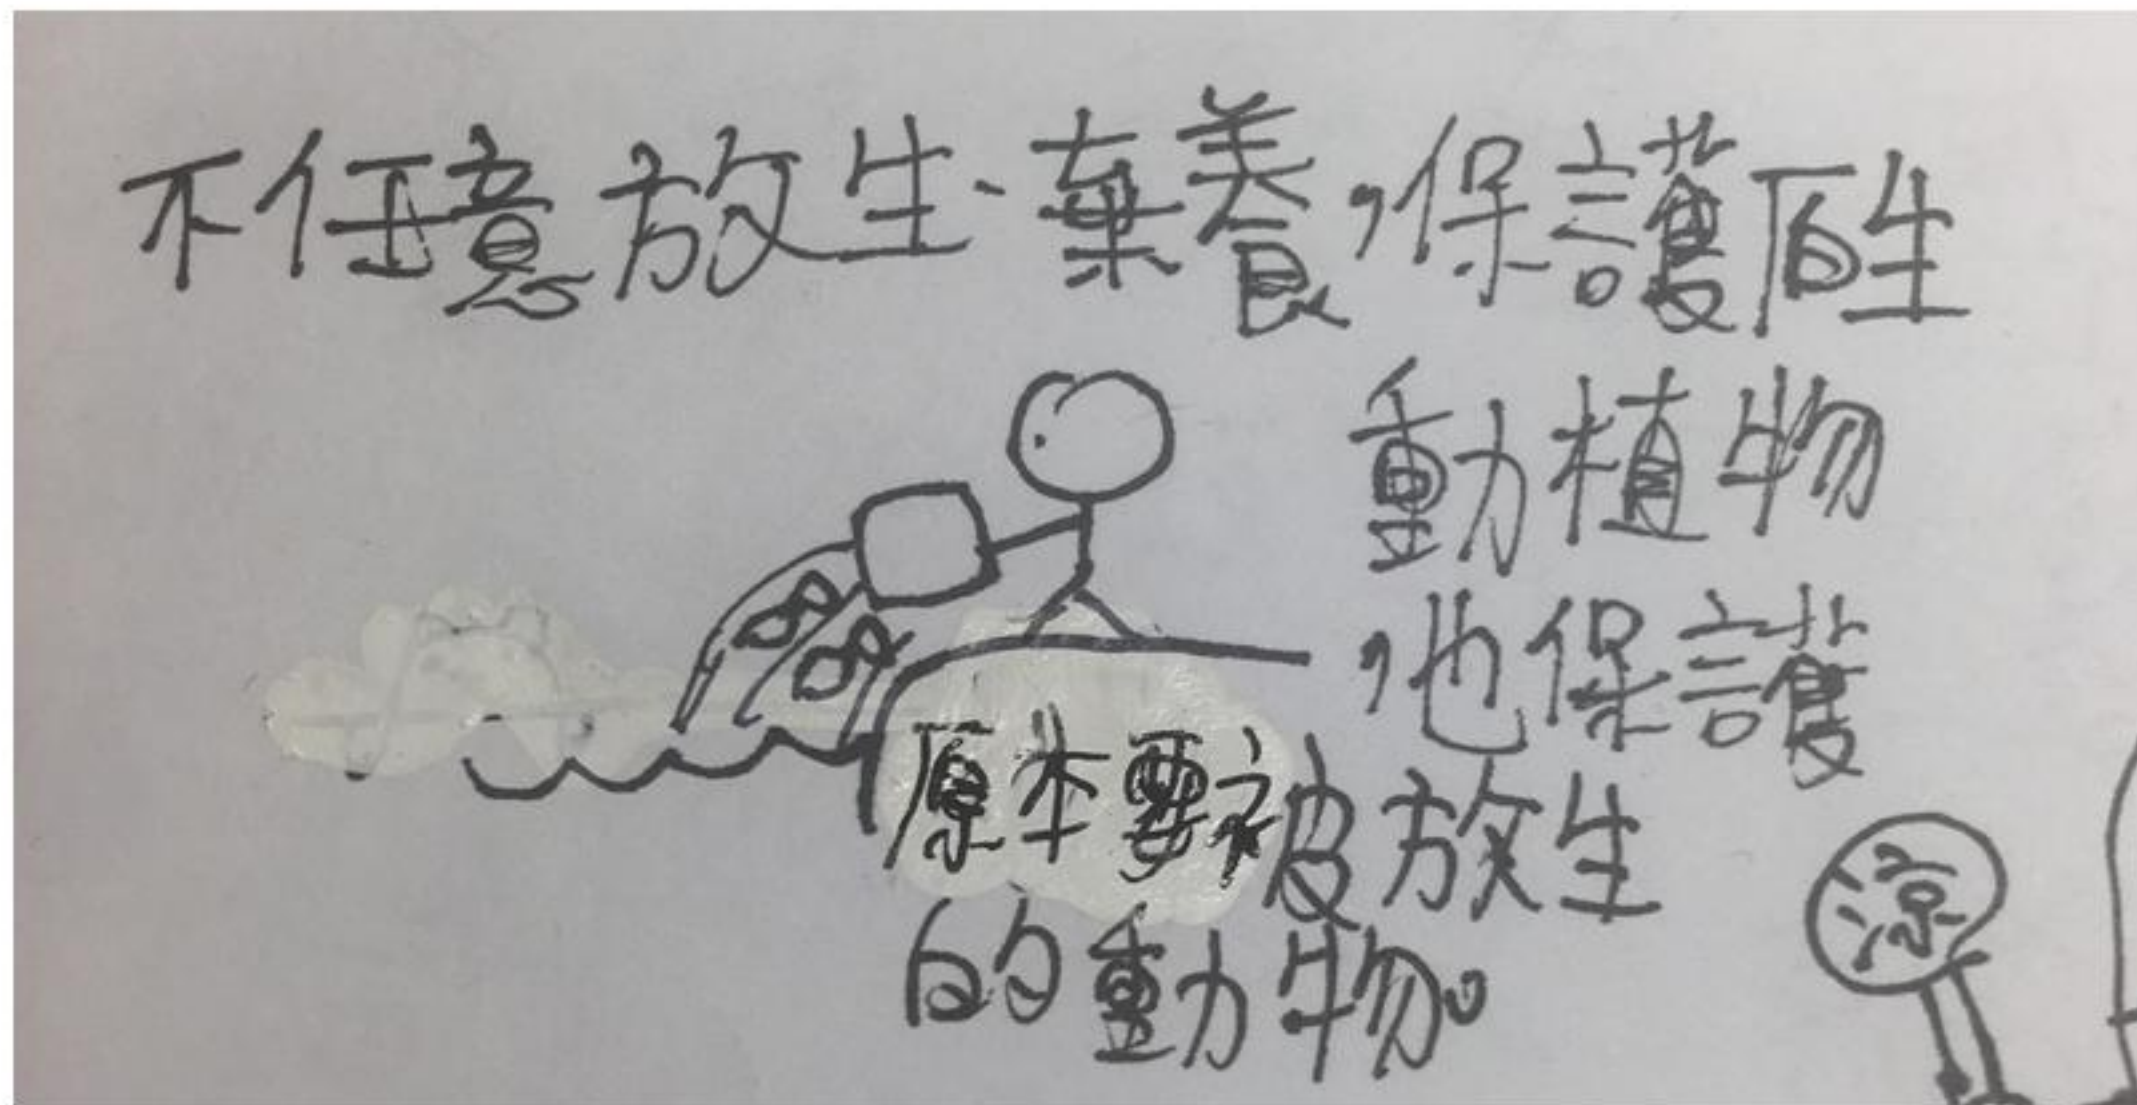 不任意放生、棄養,保護原生
動植物
,也保護
原本要被放生
的動物。
涼